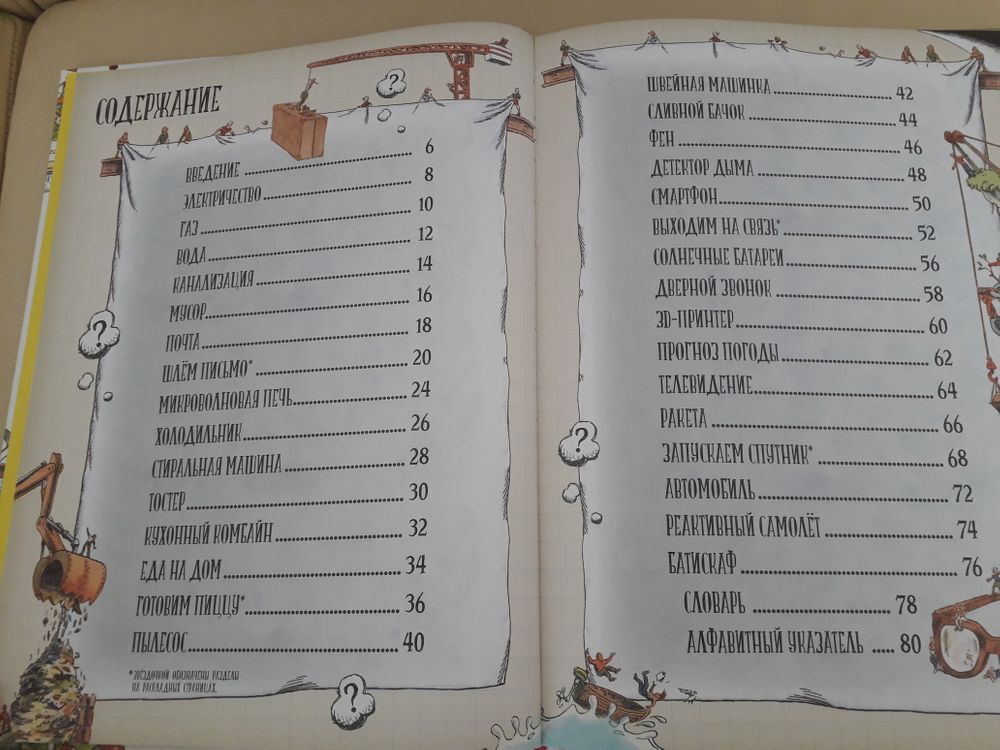 СОДЕРЖАНИЕ
ВВЕДЕНИЕ 6
ЭЛЕКТРИЧЕСТВО 8
ГАЗ 10
ВОДА 12
КАНАЛИЗАЦИЯ 14
МУСОР 16
ПОЧТА 18
ШЛЁМ ПИСЬМО* 20
МИКРОВОЛНОВАЯ ПЕЧЬ 24
ХОЛОДИЛЬНИК 26
СТИРАЛЬНАЯ МАШИНА 28
ТОСТЕР 30
КУХОННЫЙ КОМБАЙН 32
ЕДА НА ДОМ 34
ГОТОВИМ ПИЦЦУ* 36
ПЫЛЕСОС 40
*ЗВЁЗДОЧКОЙ ОБОЗНАЧЕНЫ РАЗДЕЛЫ
НА РАСКЛАДНЫХ СТРАНИЦАХ.
ШВЕЙНАЯ МАШИНКА 42
СЛИВНОЙ БАЧОК 44
ФЕН 46
ДЕТЕКТОР ДЫМА 48
СМАРТФОН 50
ВЫХОДИМ НА СВЯЗЬ* 52
СОЛНЕЧНЫЕ БАТАРЕИ 56
ДВЕРНОЙ ЗВОНОК 58
3D-ПРИНТЕР 60
ПРОГНОЗ ПОГОДЫ 62
ТЕЛЕВИДЕНИЕ 64
РАКЕТА 66
ЗАПУСКАЕМ СПУТНИК* 68
АВТОМОБИЛЬ 72
РЕАКТИВНЫЙ САМОЛЁТ 74
БАТИСКАФ 76
СЛОВАРЬ 78
АЛФАВИТНЫЙ УКАЗАТЕЛЬ 80